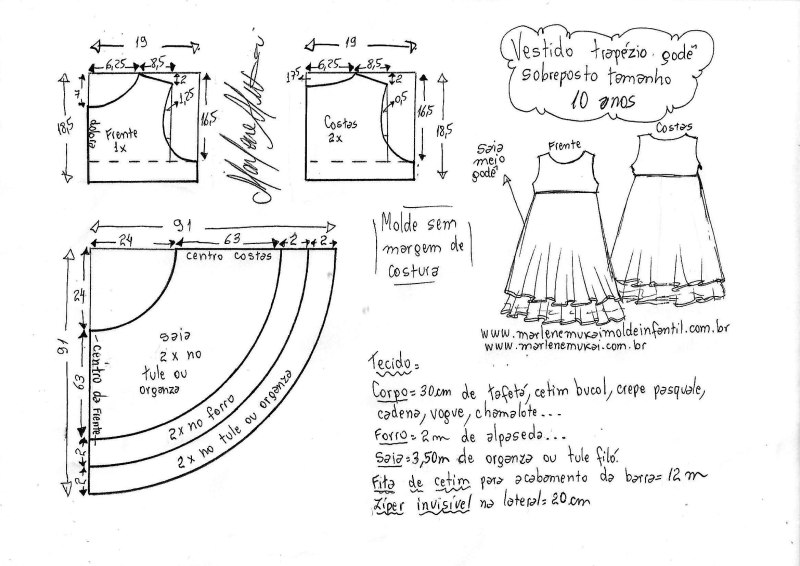 19
6,25
8,5
2
7
1,25
18,5
16,5
dobra
Frente
1x
19
6,25
8,5
1,75
2
0,5
16,5
18,5
Costas
2x
Vestido trapézio godê
sobreposto tamanho
10 anos
Saia
meio
godê
Frente
Costas
91
24
63
2
2
centro costas
24
91
63
2
2
centro da frente
saia
2x no
tule ou
organza
2x no forro
2x no tule ou organza
Molde sem
margem de
costura
www.marlenemukaimoldeinfantil.com.br
www.marlenemukai.com.br
Tecido=
Corpo=30cm de tafetá, cetim bucol, crepe pasquale,
cadena, vogue, chamalote...
Forro=2m de alpaseda...
Saia=3,50m de organza ou tule filó.
Fita de cetim para acabamento da barra=12m
Zíper invisível na lateral=20cm